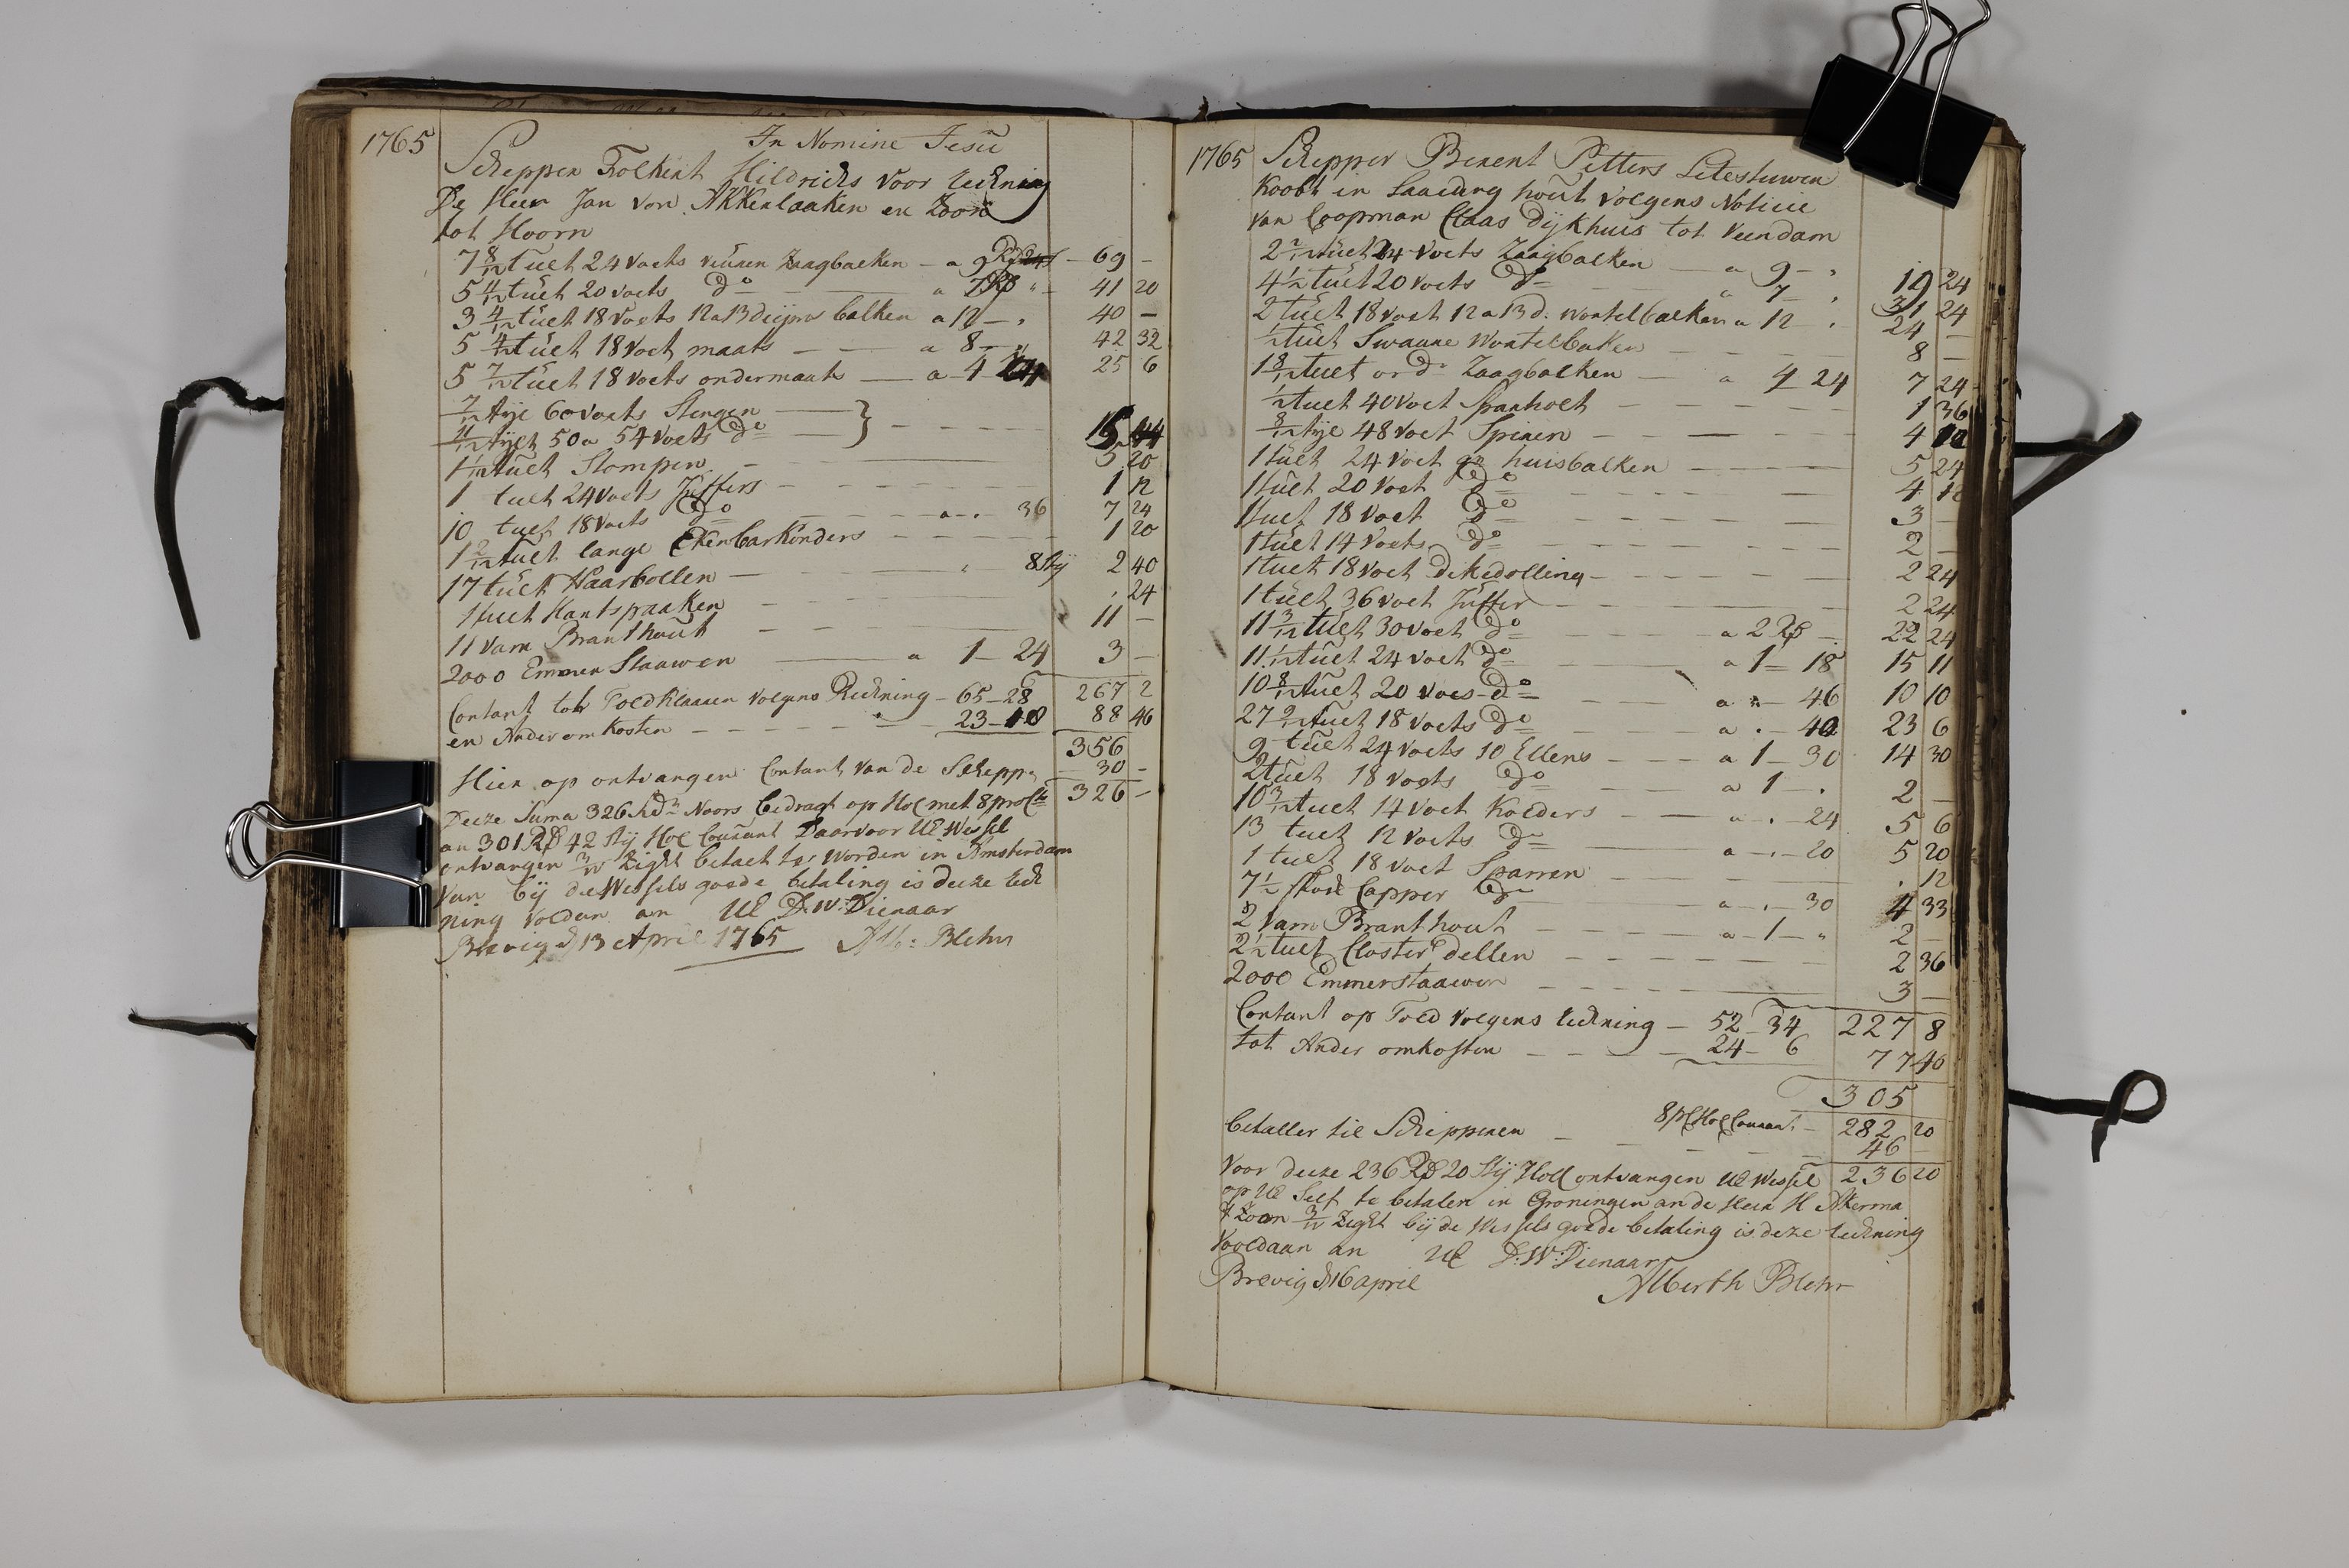 1765 In Nomine Jesu
Schepper Folkert Hildrichs voor reckning
De Heer Jan von Akkerlaaken en Zoon
tot Hoorn
7 8/12 tuelt 24 voets Zaagbalken - a 9 - 69 -
5 4/12 tuelt 20 voets do a 41 20
3 4/12 tuelt 18 voets 12 a 13 balken a 12 - 40 -
5 4/12 tuelt 18 voet maats - - a 8 - 42 32
5 7/12 tuelt 18 voets ondermaats - a 4 24 25 6
7/12 tyl 60 voets Stengen -
11/12 tylt 50 a 54 voets do - } 15
1 1/12 tuelt Stompen - 5 20
1 tuelt 24 voets Juffers - - - 1 12
10 tuelt 18 voets do a . 36 7 24
1 2/12 tuelt lange Ekenbarkonders - - - 1 20
17 tuelt Haarbollen - 8 sty 2 40
1 tuelt Hantspaaken - - . 24
11 vam Branthout - - 11 -
2000 Emmer Staawen - a 1 - 24 3 -
267 2
Contant tot Told Klaaren volgens Reckning - 65 - 28
en Ander omkosten - - - 23 - 18 88 46
356
Hier op ontvangen Contant van de Schepp. 30 -
326 -
Deeze Suma 326 Rdr Noors bedragt op Hol met 8 pro Ct
an 301 Rd 42 sty Hol Courant Daarvoor UE Wessel
ontvangen Zight betaelt te worden in Amsterdam
Van bij die Wessels goede betaling is deeze reck
ning voldan an UE D:W: Dienaar
Brevig d 13 April 1765 Alb: Blehr
1765 Schepper Berent Petters
Koobt in Laading hout volgens Notisie
van Coopman Claas Dijkhuis tot Veendam
2 2/12 tuelt 24 voets Zaagbalken - a 9 - 19 24
4 1/2 tuelt 20 voets do a 7 - 31 24
2 tuelt 18 voet 12 a 13 d. wortelbalken a 12 . 24 -
1/2 tuelt Swaare Wortelbalken - - - 8 -
1 8/12 tuelt or do Zaagbalken - a 4 24 7 24
1/2 tuelt 40 voet Spanholt - - - 1 36
8/12 tyl 48 voet Spieren - - - 4
1 tuelt 24 voet gr. huisbalken - - - 5 24
1 tuelt 20 voet do - - - 4 12
1 tuelt 18 voet do - - - 3 -
1 tuelt 14 voets do - - - 2 -
1 tuelt 18 voet - - - 2 24
1 tuelt 36 voet Juffer - - - 2 24
11 3/12 tuelt 30 voet do a 2 Rd - 22 24
11 1/12 tuelt 24 voet do a 1 - 18 15 11
10 8/12 tuelt 20 voet do a - 46 10 10
27 9/12 tuelt 18 voets do a . - 40 23 6
9 tuelt 24 voets 10 Ellens - - a 1 - 30 14 30
2 tuelt 18 voets do a 1 - . 2 -
10 3/12 tuelt 14 voet Kolders - a . 24 5 6
13 tuelt 12 voets do a . - 20 5 20
1 tuelt 18 voet Sparren - - . 12
7 1/2 Capper do - a . - 30 4 33
2 vam Branthout - - - a 1 - 2 -
2 1/2 tuelt Closter dellen - - - 2 36
2000 Emmerstaawen - - - 3 -
227 8
Contant op Told volgens reckning - 52 - 34
tot Ander omkosten - - - 24 - 6 77 40
305
8 pCt Hol Courant - 282 20
betaller til Schipperen - - - 46 -
Voor deeze 236 Rd 20 sty Holl ontvangen UE Wessel 236 20
op UE Self te betalen in Groningen an de Heer H Akerma
& Zoon Zight bij de Wessels goede betaling is deze reckning
Voldaan an UE D:W: Dienaar
Brevig d 16 april Alberth Blehr